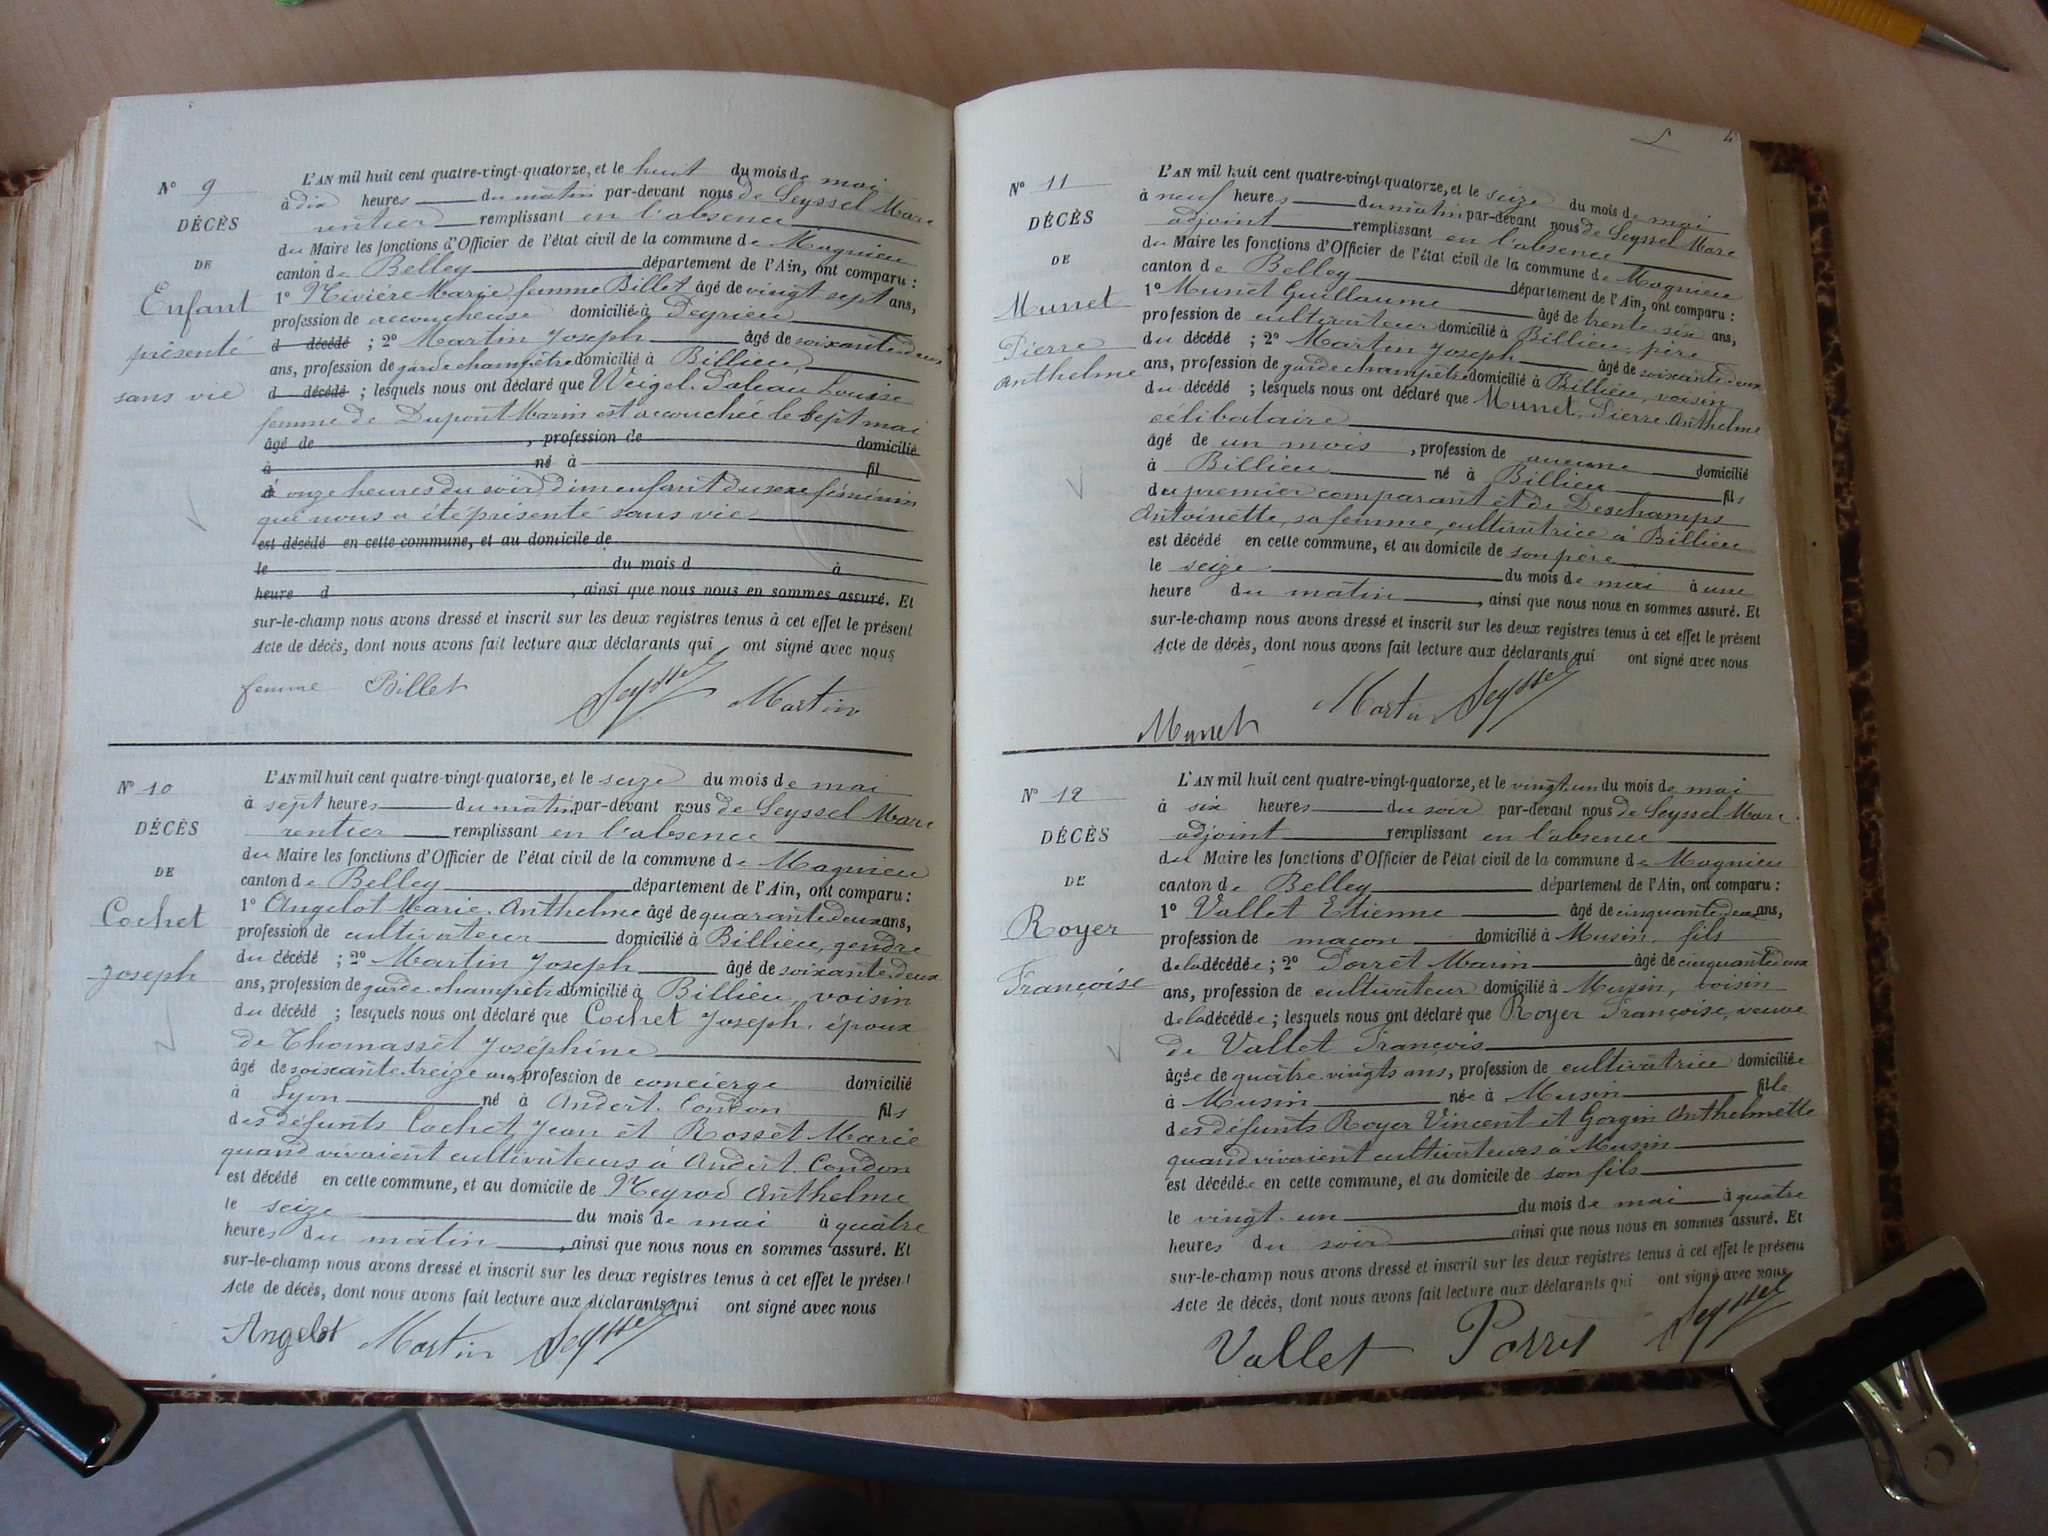 N° 9
DÉCÈS
DE
Enfant
présenté
sans vie
L'AN mil huit cent quatre-vingt-quatorze, et le huit du mois de mai
à dix heures du matin par-devant nous de Seyssel Marc
rentier remplissant en l'absence
du Maire les fonctions d'Officier de l'état civil de la commune de Magnieu
canton de Belley département de l'Ain, ont comparu :
1° Rivière Marie femme Billet âgé de vingt sept ans,
profession de accoucheuse domicilié à Peyrieu
d décédé ; 2° Martin Joseph âgé de soixante deux
ans, profession de garde champêtre domicilié à Billieu,
d décédé ; lesquels nous ont déclaré que Weigel Louise
femme de Dupont Marin est accouchée le sept mai
âgé de , profession de domicilié
à né à fil
à onze heures du soir d'un enfant du sexe féminin
qui nous a été présenté sans vie
est décédé en cette commune, et au domicile de
le du mois d à
heure d , ainsi que nous nous en sommes assuré. Et
sur-le-champ nous avons dressé et inscrit sur les deux registres tenus à cet effet le présent
Acte de décès, dont nous avons fait lecture aux déclarants qui ont signé avec nous
femme Billet Seyssel Martin
N° 10
DÉCÈS
DE
Cochet
Joseph
L'AN mil huit cent quatre-vingt-quatorze, et le seize du mois de mai
à sept heures du matin par-devant nous de Seyssel Marc
rentier remplissant en l'absence
du Maire les fonctions d'Officier de l'état civil de la commune de Magnieu
canton de Belley département de l'Ain, ont comparu :
1° Angelot Marie Anthelme âgé de quarante deux ans,
profession de cultivateur domicilié à Billieu, gendre
du décédé ; 2° Martin Joseph âgé de soixante deux
ans, profession de garde champêtre domicilié à Billieu, voisin
du décédé ; lesquels nous ont déclaré que Cochet Joseph, époux
de Thomasset Joséphine
âgé de soixante treize ans, profession de concierge domicilié
à Lyon né à Andert-Condon fils
des défunts Cochet Jean et Rosset Marie
quand vivaient cultivateurs à Andert-Condon
est décédé en cette commune, et au domicile de Neyrod Anthelme
le seize du mois de mai à quatre
heures du matin , ainsi que nous nous en sommes assuré. Et
sur-le-champ nous avons dressé et inscrit sur les deux registres tenus à cet effet le présent
Acte de décès, dont nous avons fait lecture aux déclarants qui ont signé avec nous
Angelot Martin Seyssel
N° 11
DÉCÈS
DE
Munet
Pierre
Anthelme
L'AN mil huit cent quatre-vingt-quatorze, et le seize du mois de mai
à neuf heures du matin par-devant nous de Seyssel Marc
adjoint remplissant en l'absence
du Maire les fonctions d'Officier de l'état civil de la commune de Magnieu
canton de Belley département de l'Ain, ont comparu :
1° Munet Guillaume âgé de trente six ans,
profession de cultivateur domicilié à Billieu, père
du décédé ; 2° Martin Joseph âgé de soixante deux
ans, profession de garde champêtre domicilié à Billieu, voisin
du décédé ; lesquels nous ont déclaré que Munet Pierre Anthelme
célibataire
âgé de un mois , profession de aucune domicilié
à Billieu né à Billieu fils
du premier comparant et de Deschamps
Antoinette, sa femme, cultivatrice à Billieu
est décédé en cette commune, et au domicile de son père
le seize du mois de mai à une
heure du matin , ainsi que nous nous en sommes assuré. Et
sur-le-champ nous avons dressé et inscrit sur les deux registres tenus à cet effet le présent
Acte de décès, dont nous avons fait lecture aux déclarants qui ont signé avec nous
Munet Martin Seyssel
N° 12
DÉCÈS
DE
Royer
Françoise
L'AN mil huit cent quatre-vingt-quatorze, et le vingt un du mois de mai
à six heures du soir par-devant nous de Seyssel Marc
adjoint remplissant en l'absence
du Maire les fonctions d'Officier de l'état civil de la commune de Magnieu
canton de Belley département de l'Ain, ont comparu :
1° Vallet Etienne âgé de cinquante deux ans,
profession de maçon domicilié à Musin, fils
de la décédée ; 2° Porret Marin âgé de cinquante deux
ans, profession de cultivateur domicilié à Musin, voisin
de la décédée ; lesquels nous ont déclaré que Royer Françoise, veuve
de Vallet François
âgée de quatre vingts ans, profession de cultivatrice domiciliée
à Musin née à Musin fille
des défunts Royer Vincent et Gorgin Anthelmette
quand vivaient cultivateurs à Musin
est décédée en cette commune, et au domicile de son fils
le vingt un du mois de mai à quatre
heures du soir ainsi que nous nous en sommes assuré. Et
sur-le-champ nous avons dressé et inscrit sur les deux registres tenus à cet effet le présent
Acte de décès, dont nous avons fait lecture aux déclarants qui ont signé avec nous
Vallet Porret Seyssel